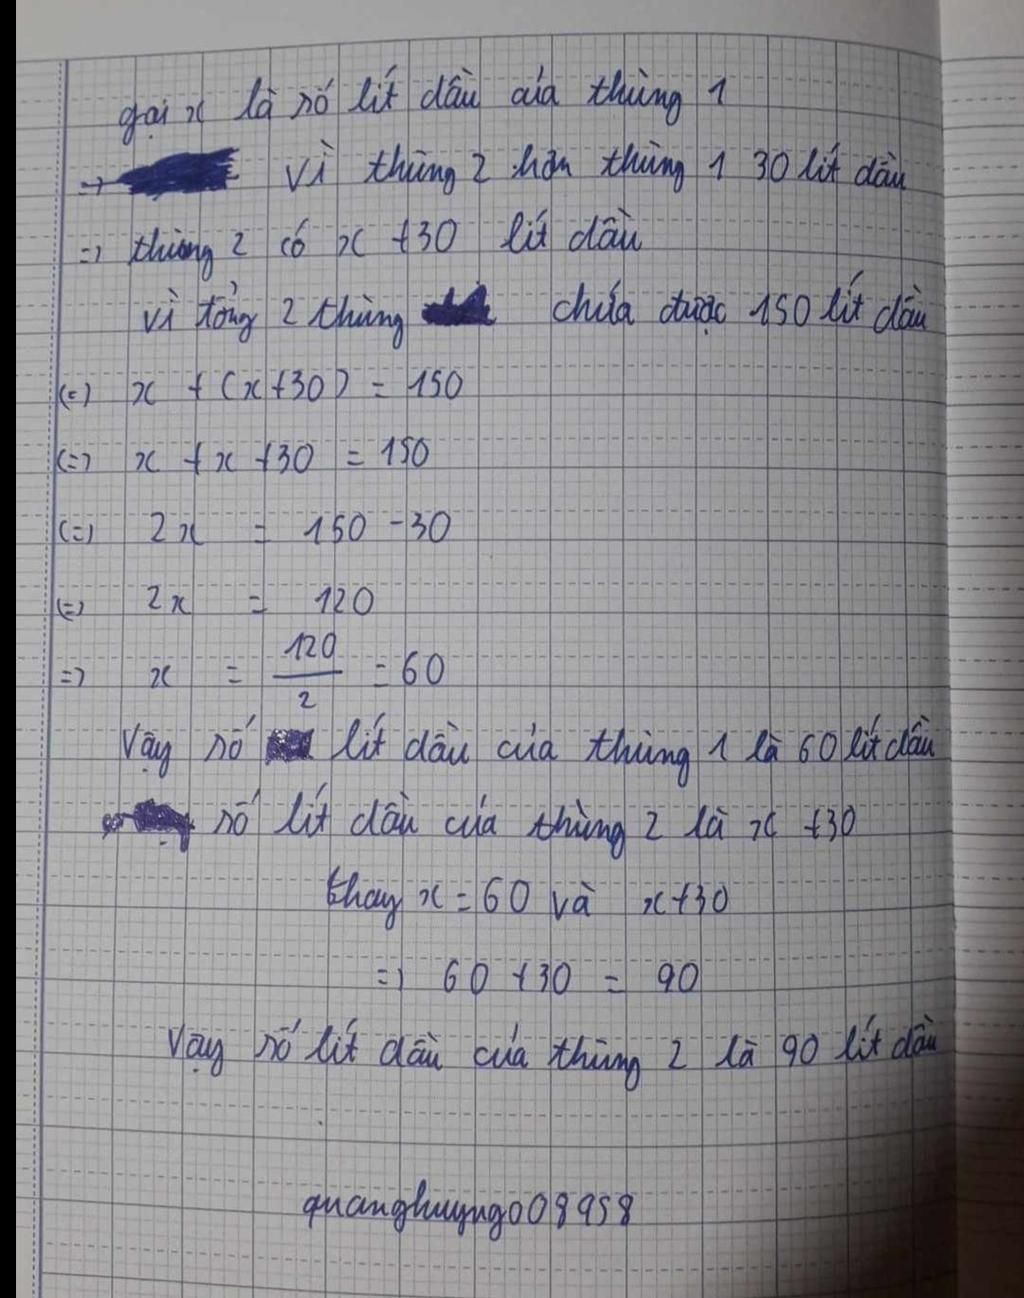 gọi x là số lít dầu của thùng 1
=> vì thùng 2 hơn thùng 1 30 lít dầu
=> thùng 2 có x + 30 lít dầu
vì tổng 2 thùng chứa được 150 lít dầu
(=) x + (x+30) = 150
(=> x + x + 30 = 150
(=) 2x = 150 - 30
(=) 2x = 120
=> x = 120/2 = 60
Vậy số lít dầu của thùng 1 là 60 lít dầu
số lít dầu của thùng 2 là x + 30
thay x = 60 và x+30
=> 60 + 30 = 90
Vậy số lít dầu của thùng 2 là 90 lít dầu
quanghuyngo08958